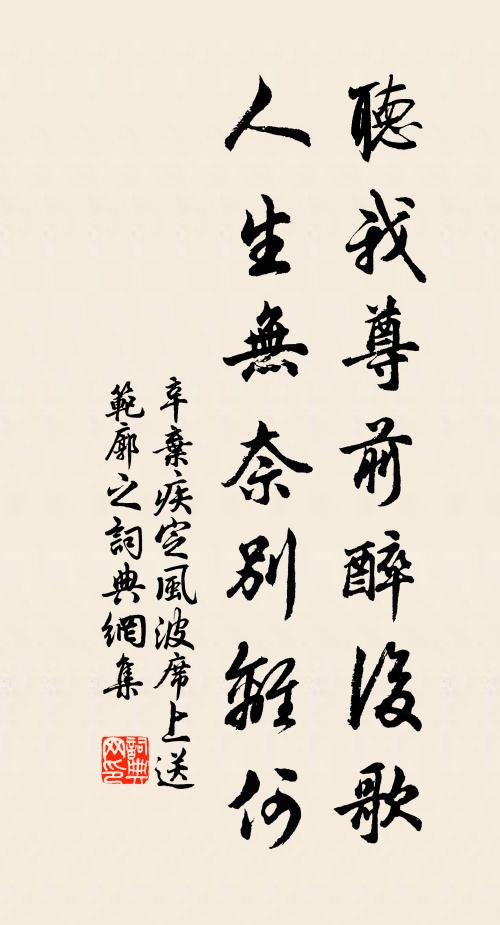 聽我尊前醉後歌
人生無奈別離何
辛棄疾定風波席上送
範廓之詞典網集
詞典
网印